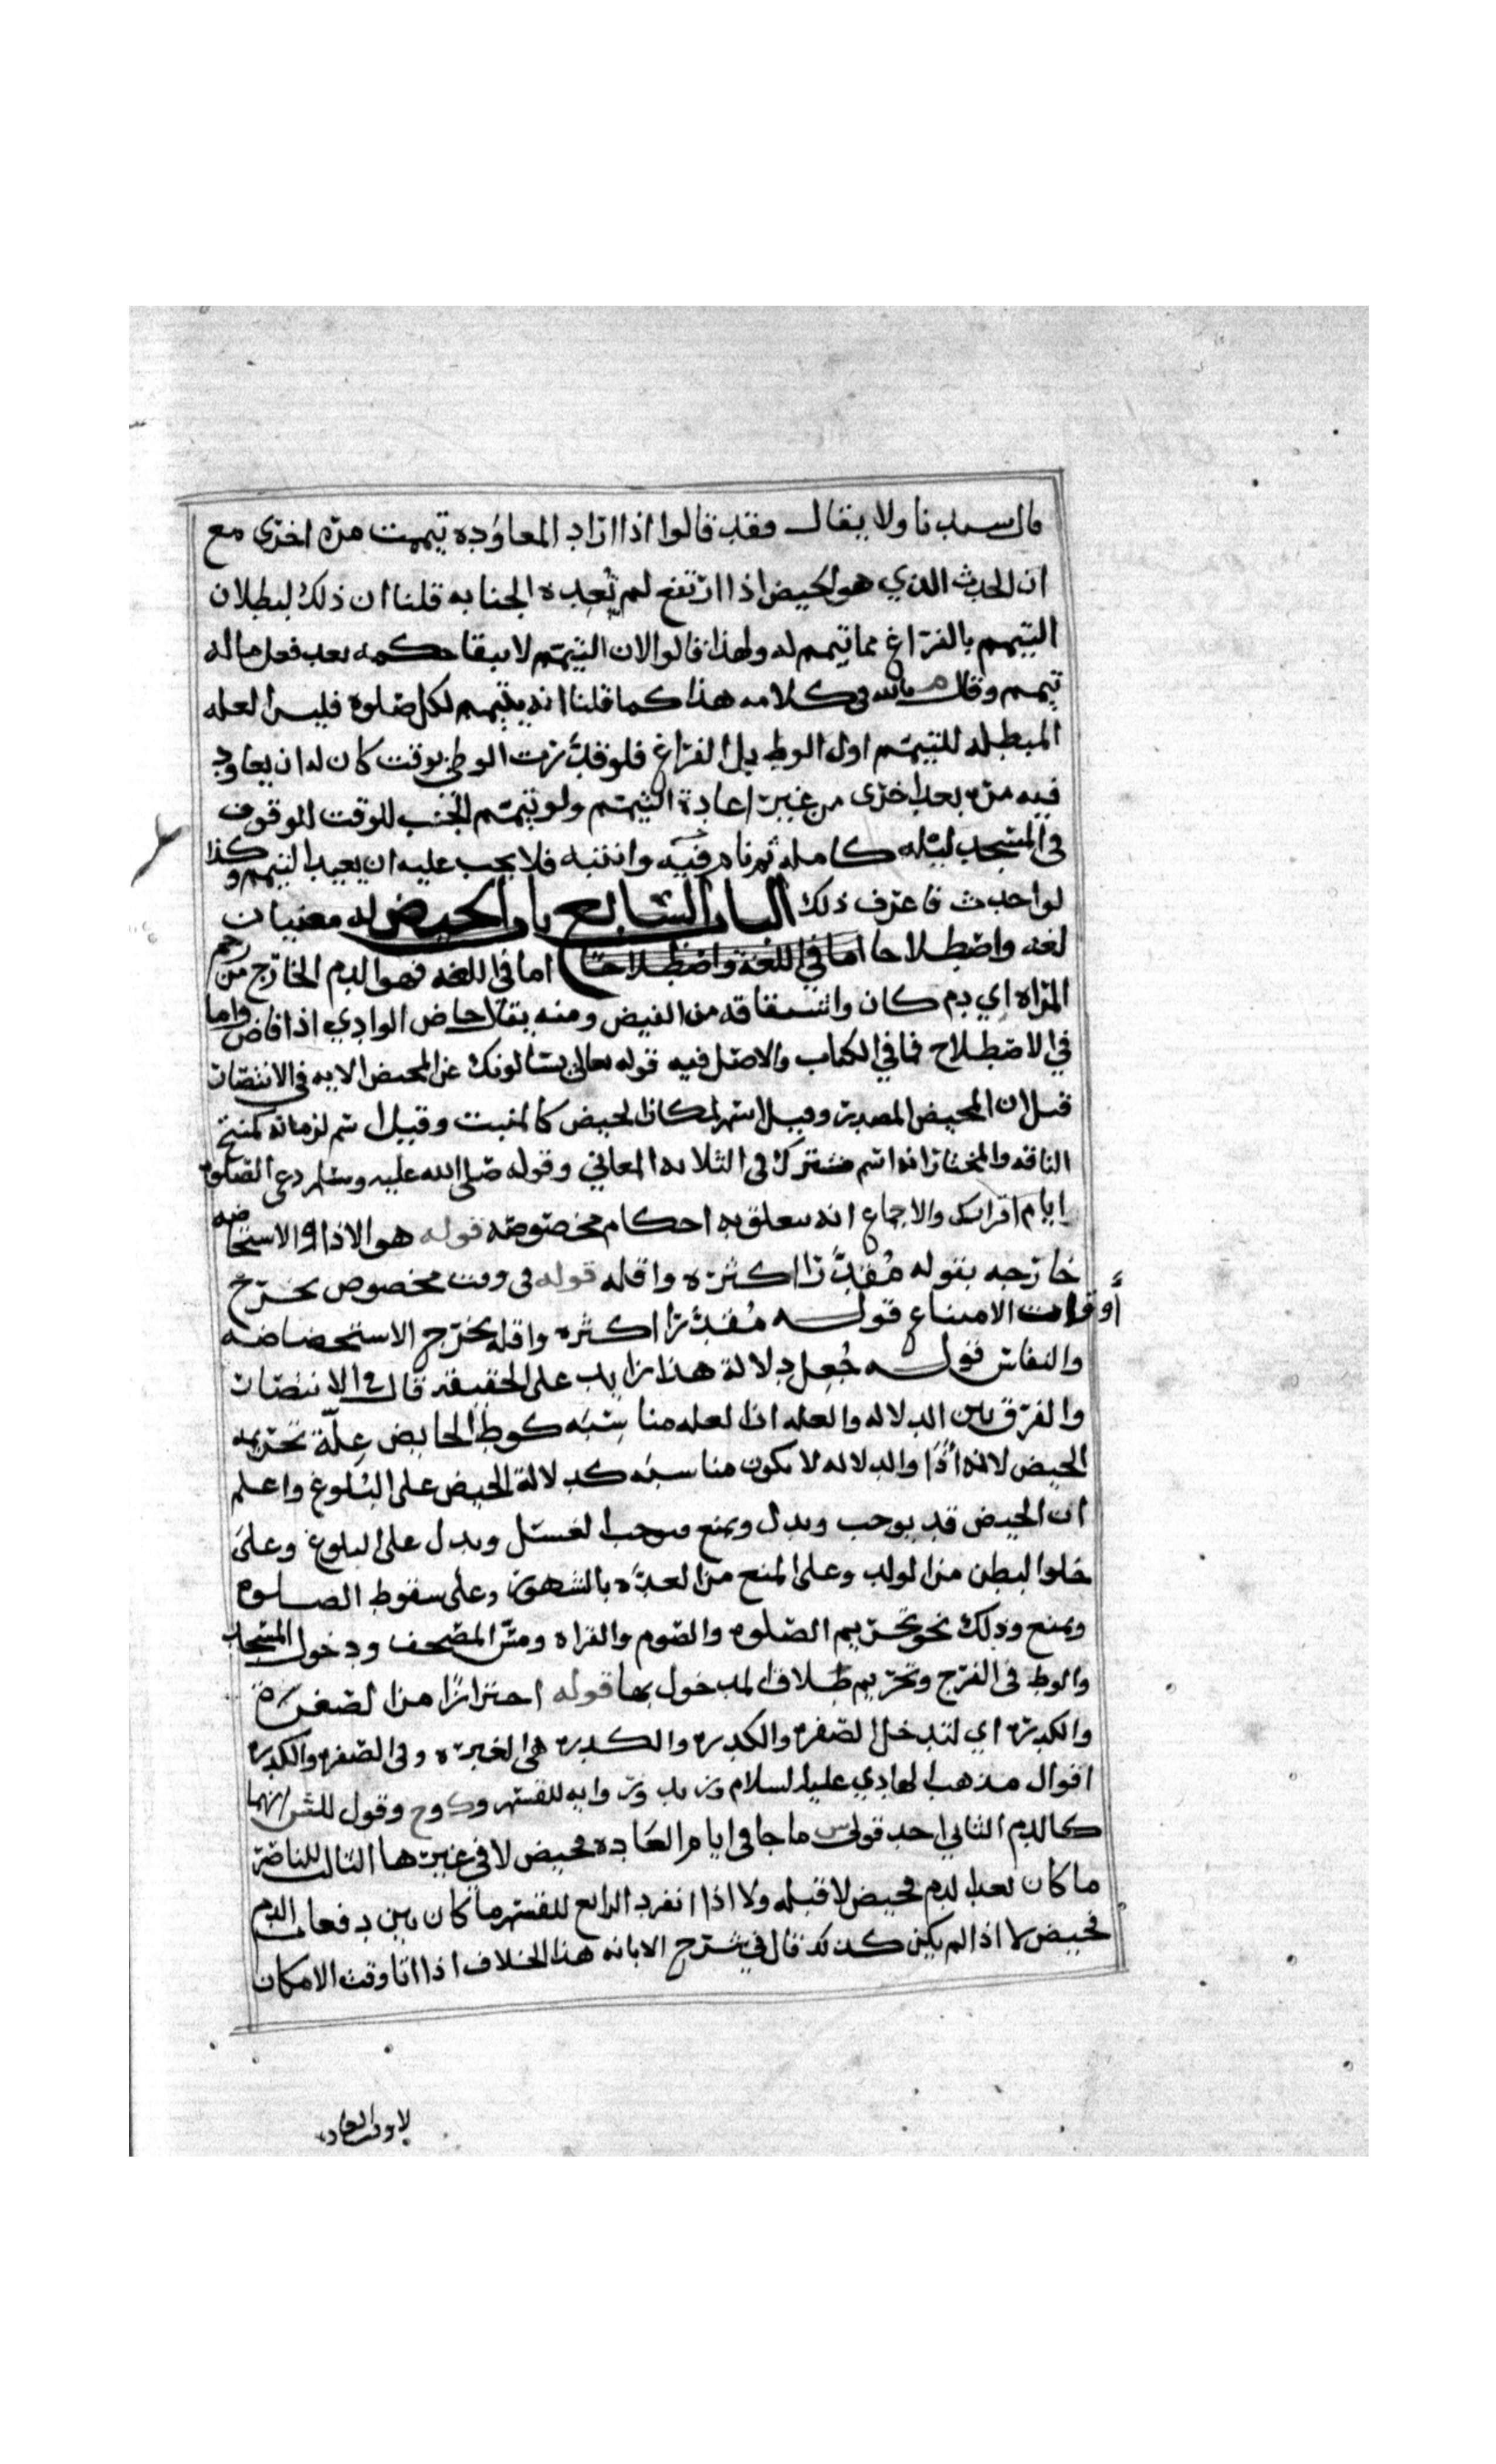 قال سيدنا ولا يقال فقد قالوا اذا اراد المعاوده تيممت مره اخرى مع
ان الحدث الذي هو الحيض اذا ارتفع لم تعده الجنابه قلنا ان ذلك لبطلان
التيمم بالفراغ مما تيمم له ولهذا قالوا لان التيمم لا يبقا حكمه بعد فعل ماله
تيمم وقال في كلامه هذا كما قلنا انه يتيمم لكل صلوة فليس العله
المبطله للتيمم اول الوطي بل الفراغ فلو قدرت الوطي بوقت كان له ان يعاود
فيه مره بعد اخرى من غير اعادة التيمم ولو تيمم الجنب للوقت للوقوف
في المسجد ليله كامله ثم نام فيه وانتبه فلا يجب عليه ان يعيد التيمم وكذا
لو احدث فاعرف ذلك الباب السابع باب الحيض له معنيان
لغه واصطلاحا اما في اللغة واصطلاحا اما في اللغه فهو الدم الخارج من رحم
المراه اي دم كان واشتقاقه من الفيض ومنه يقال حاض الوادي اذا فاض واما
في الاصطلاح فما في الكتاب والاصل فيه قوله تعالى يسالونك عن المحيض الايه في الانتصار
قيل ان المحيض المصدر وقيل اسم لمكان الحيض كالمنبت وقيل اسم لزمانه كمنتج
الناقه والمختار انه اسم مشترك في الثلاثه المعاني وقوله صلى الله عليه وسلم دعي الصلوه
ايام اقرائك والاجماع انه يتعلق به احكام مخصوصه قوله هو الاذا والاستحاضه
خارجه بقوله مقدرا اكثره واقله قوله في وقت مخصوص يخرج
أوقات الامتناع قوله مقدرا اكثره واقله يخرج الاستحضاضه
والنفاس قوله جعل دلالة هذا زايد على الحقيقه قال في الانتصار
والفرق بين الدلاله والعله ان العله مناسبه كوطي الحايض علة تحريمه
الحيض لانه اذًا والدلاله لا يكون مناسبه كدلالة الحيض على البلوغ واعلم
ان الحيض قد يوجب ويدل ويمنع فيوجب الغسل ويدل على البلوغ وعلى
خلوا البطن من الولد وعلى المنع من العده بالشهور وعلى سقوط الصلوه
ويمنع وذلك نحو تحريم الصلوه والصوم والقراه ومس المصحف ودخول المسجد
والوطي في الفرج وتحريم طلاق المدخول بها قوله احترازا من الصفره
والكدره اي لتدخل الصفره والكدره والكدره هي الغبره وفي الصفره والكدره
اقوال مذهب الهادي عليه السلام وزيد وروايه للقسم و وح وقول للش انهما
كالدم الثاني احد قولي س ما جا في ايام العاده فحيض لا في غيرها الثالث للناصر
ما كان بعد الدم فحيض لا قبله ولا اذا انفرد الرابع للقسم ما كان بين دفعات الدم
فحيض لا اذا لم يكن كذلك قال في شرح الابانه هذا الخلاف اذا اتا وقت الامكان
لا وقت العاده